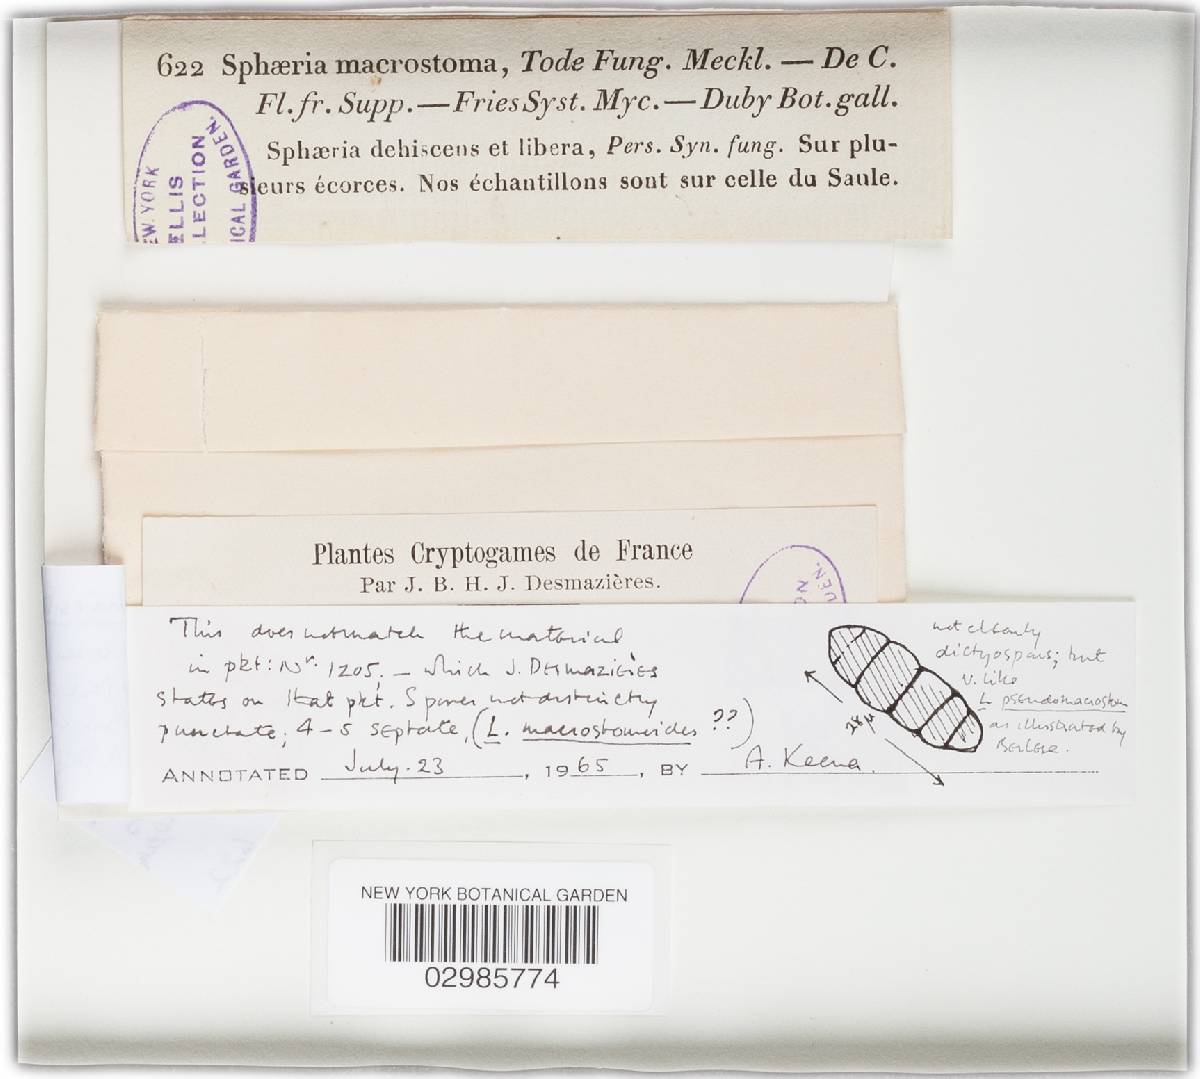 622 Sphæria macrostoma, Tode Fung. Meckl. — De C.
Fl. fr. Supp. — Fries Syst. Myc. — Duby Bot. gall.
Sphæria dehiscens et libera, Pers. Syn. fung. Sur plu-
sieurs écorces. Nos échantillons sont sur celle du Saule.
EW. YORK
ELLIS
LLECTION
ICAL GARDEN.
Plantes Cryptogames de France
Par J. B. H. J. Desmazières.
This does not match the material
in pkt: Nr. 1205, — which J. Desmazières
states on that pkt. Spores not distinctly
punctate, 4-5 septate, (L. macrostomoides ??)
ANNOTATED July. 23, 1965, BY A. Keena.
not clearly
dictyospous; but
v. like
L pseudomacrostom
as illustrated by
Berlese.
NEW YORK BOTANICAL GARDEN
02985774